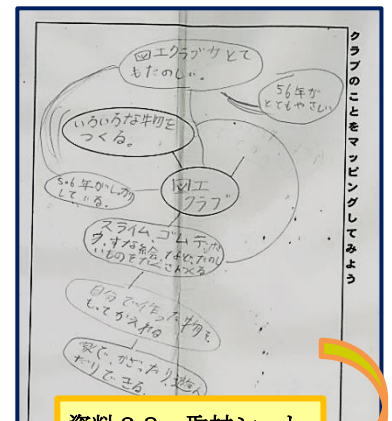 クラブのことをマッピングしてみよう
図工クラブがとて
もたのしい。
56年が
とてもやさしい
いろいろな物を
つくる。
図工
クラブ
5.6年がしっかり
している。
スライム、ゴムデッポ
ウ、すな絵、など、たのし
いものをたくさんつくる
自分で作った物を
もってかえれる
家で、かざったり、遊ん
だりできる。
資料
取材シート